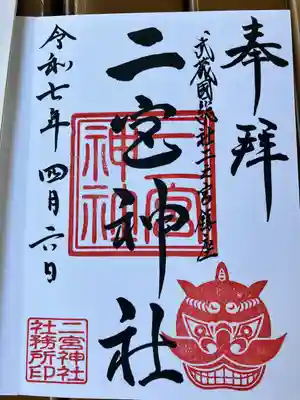 奉拝
武蔵國総社二之宮鎮座
二宮神社
二宮神社
令和七年 四月六日
二宮神社
社務所印